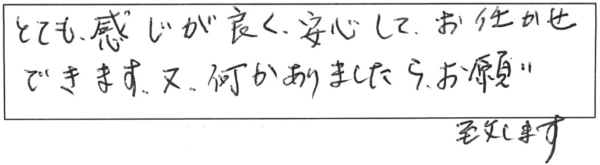 とても、感じが良く、安心して、お任かせ
できます。又、何かありましたら、お願い
致します